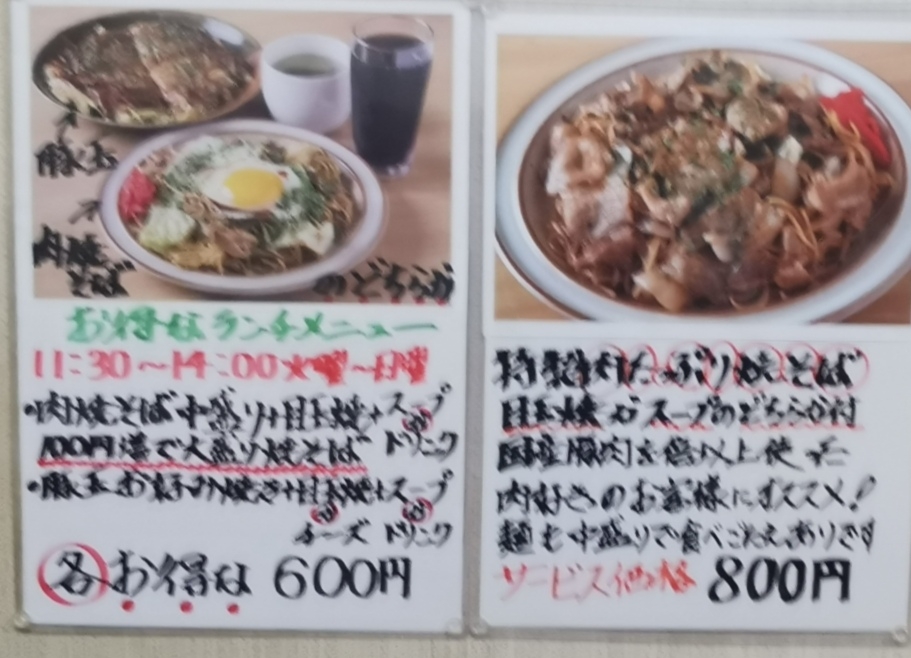 豚玉
肉焼
そば
のどちらか
お得なランチメニュー
11:30〜14:00火曜〜日曜
・肉焼そば中盛り+目玉焼+スープ
or
ドリンク
100円増で大盛り焼そば
・豚玉お好み焼き+目玉焼+スープ
or or
チーズ ドリンク
各お得な 600円
特製肉たっぷり焼そば
目玉焼かスープのどちらか付
国産豚肉を倍以上使った
肉好きのお客様にオススメ!
麺も中盛りで食べごたえありです
サービス価格 800円